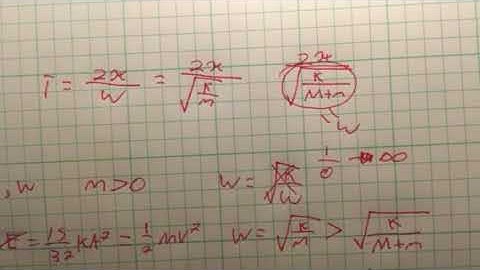 T = 2x/W = 2x/√(K/m) 2x/√(K/(M+m))
W
, W m>0 W = 1/0 → ∞
E = 15/32 KA² = 1/2 MV² W = √(K/m) > √(K/(M+m))